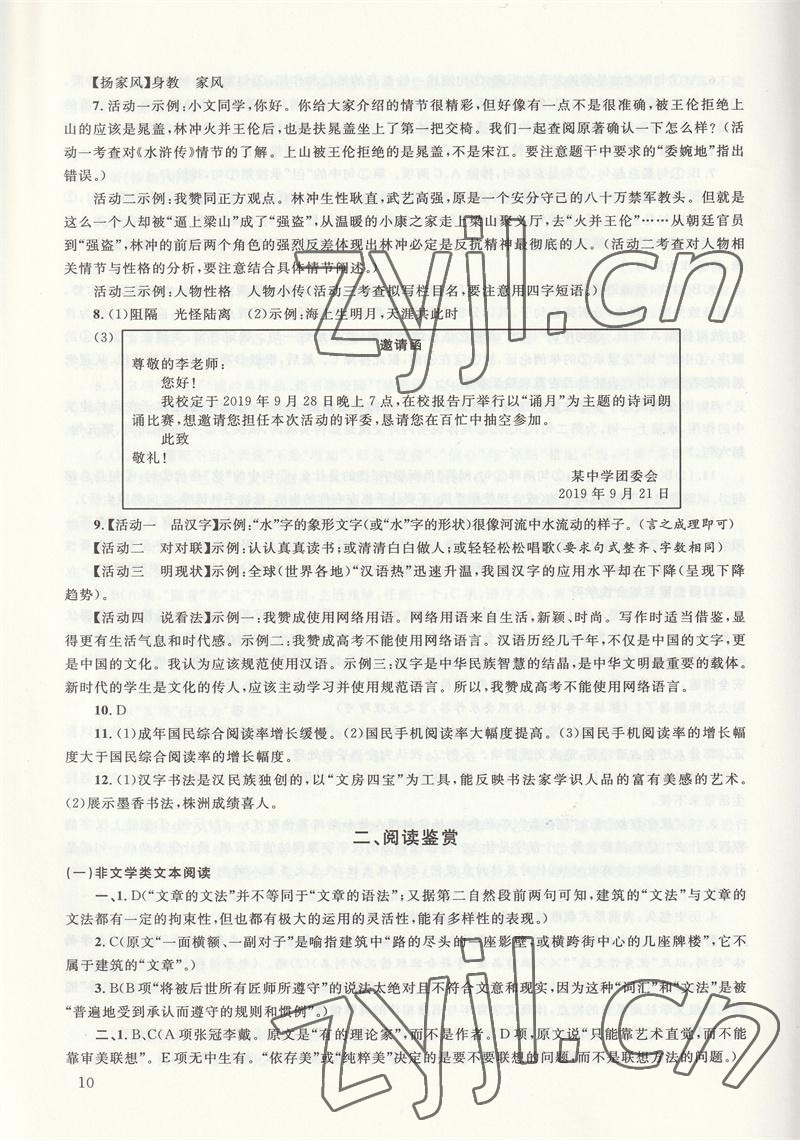 【扬家风】身教　家风
7. 活动一示例:小文同学,你好。你给大家介绍的情节很精彩,但好像有一点不是很准确,被王伦拒绝上
山的应该是晁盖,林冲火并王伦后,也是扶晁盖坐上了第一把交椅。我们一起查阅原著确认一下怎么样?(活
动一考查对《水浒传》情节的了解。上山被王伦拒绝的是晁盖,不是宋江。要注意题干中要求的“委婉地”指出
错误。)
活动二示例:我赞同正方观点。林冲生性耿直,武艺高强,原是一个安分守己的八十万禁军教头。但就是
这么一个人却被“逼上梁山”成了“强盗”,从温暖的小康之家走上梁山聚义厅,去“火并王伦”……从朝廷官员
到“强盗”,林冲的前后两个角色的强烈反差体现出林冲必定是反抗精神最彻底的人。(活动二考查对人物相
关情节与性格的分析,要注意结合具体情节阐述。)
活动三示例:人物性格　人物小传(活动三考查拟写栏目名,要注意用四字短语。)
8. (1)阻隔　光怪陆离　(2)示例:海上生明月,天涯共此时
(3)
邀请函
尊敬的李老师:
您好!
我校定于 2019 年 9 月 28 日晚上 7 点,在校报告厅举行以“诵月”为主题的诗词朗
诵比赛,想邀请您担任本次活动的评委,恳请您在百忙中抽空参加。
此致
敬礼!
某中学团委会
2019 年 9 月 21 日
9. 【活动一　品汉字】示例:“水”字的象形文字(或“水”字的形状)很像河流中水流动的样子。(言之成理即可)
【活动二　对对联】示例:认认真真读书;或清清白白做人;或轻轻松松唱歌(要求句式整齐、字数相同)
【活动三　明现状】示例:全球(世界各地)“汉语热”迅速升温,我国汉字的应用水平却在下降(呈现下降
趋势)。
【活动四　说看法】示例一:我赞成使用网络用语。网络用语来自生活,新颖、时尚。写作时适当借鉴,显
得更有生活气息和时代感。示例二:我赞成高考不能使用网络语言。汉语历经几千年,不仅是中国的文字,更
是中国的文化。我认为应该规范使用汉语。示例三:汉字是中华民族智慧的结晶,是中华文明最重要的载体。
新时代的学生是文化的传人,应该主动学习并使用规范语言。所以,我赞成高考不能使用网络语言。
10. D
11. (1)成年国民综合阅读率增长缓慢。(2)国民手机阅读率大幅度提高。(3)国民手机阅读率的增长幅
度大于国民综合阅读率的增长幅度。
12. (1)汉字书法是汉民族独创的,以“文房四宝”为工具,能反映书法家学识人品的富有美感的艺术。
(2)展示墨香书法,株洲成绩喜人。
二、阅读鉴赏
(一)非文学类文本阅读
一、1. D(“文章的文法”并不等同于“文章的语法”;又据第二自然段前两句可知,建筑的“文法”与文章的
文法都有一定的拘束性,但也都有极大的运用的灵活性,能有多样性的表现。)
2. C(原文“一面横额、一副对子”是喻指建筑中“路的尽头的一座影壁,或横跨街中心的几座牌楼”,它不
属于建筑的“文章”。)
3. B(B项“将被后世所有匠师所遵守”的说法太绝对且不符合文意和现实,因为这种“词汇”和“文法”是
“普遍地受到承认而遵守的规则和惯例”。)
二、1. B、C(A项张冠李戴。原文是“有的理论家”,而不是作者。D项,原文说“只能靠艺术直觉,而不能
靠审美联想”。E项无中生有。“依存美”或“纯粹美”决定的是要不要联想的问题,而不是联想方法的问题。)
10
zyjl.cn
zyjl.cn